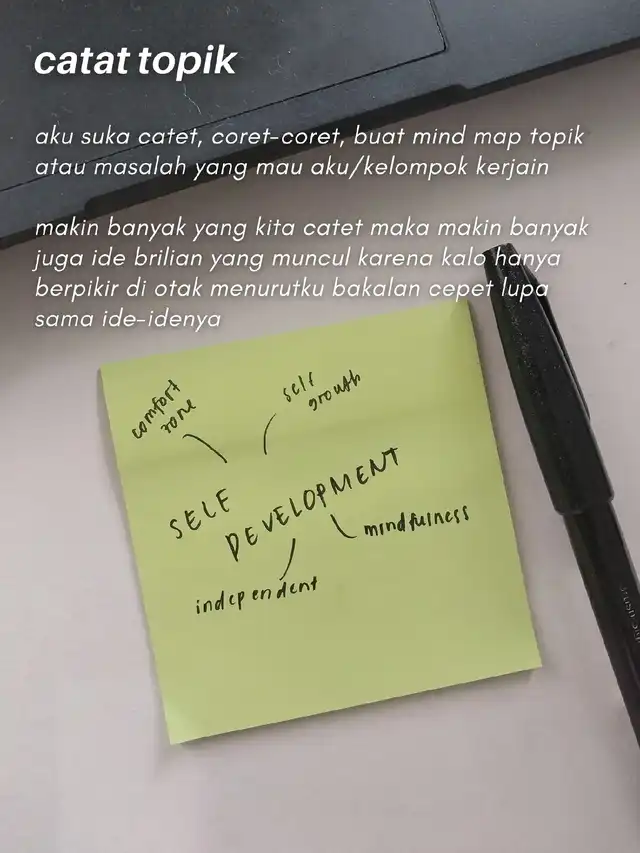 catat topik
aku suka catet, coret-coret, buat mind map topik
atau masalah yang mau aku/kelompok kerjain
makin banyak yang kita catet maka makin banyak
juga ide brilian yang muncul karena kalo hanya
berpikir di otak menurutku bakalan cepet lupa
sama ide-idenya
comfort
zone
self
growth
SELF
DEVELOPMENT
mindfulness
independent